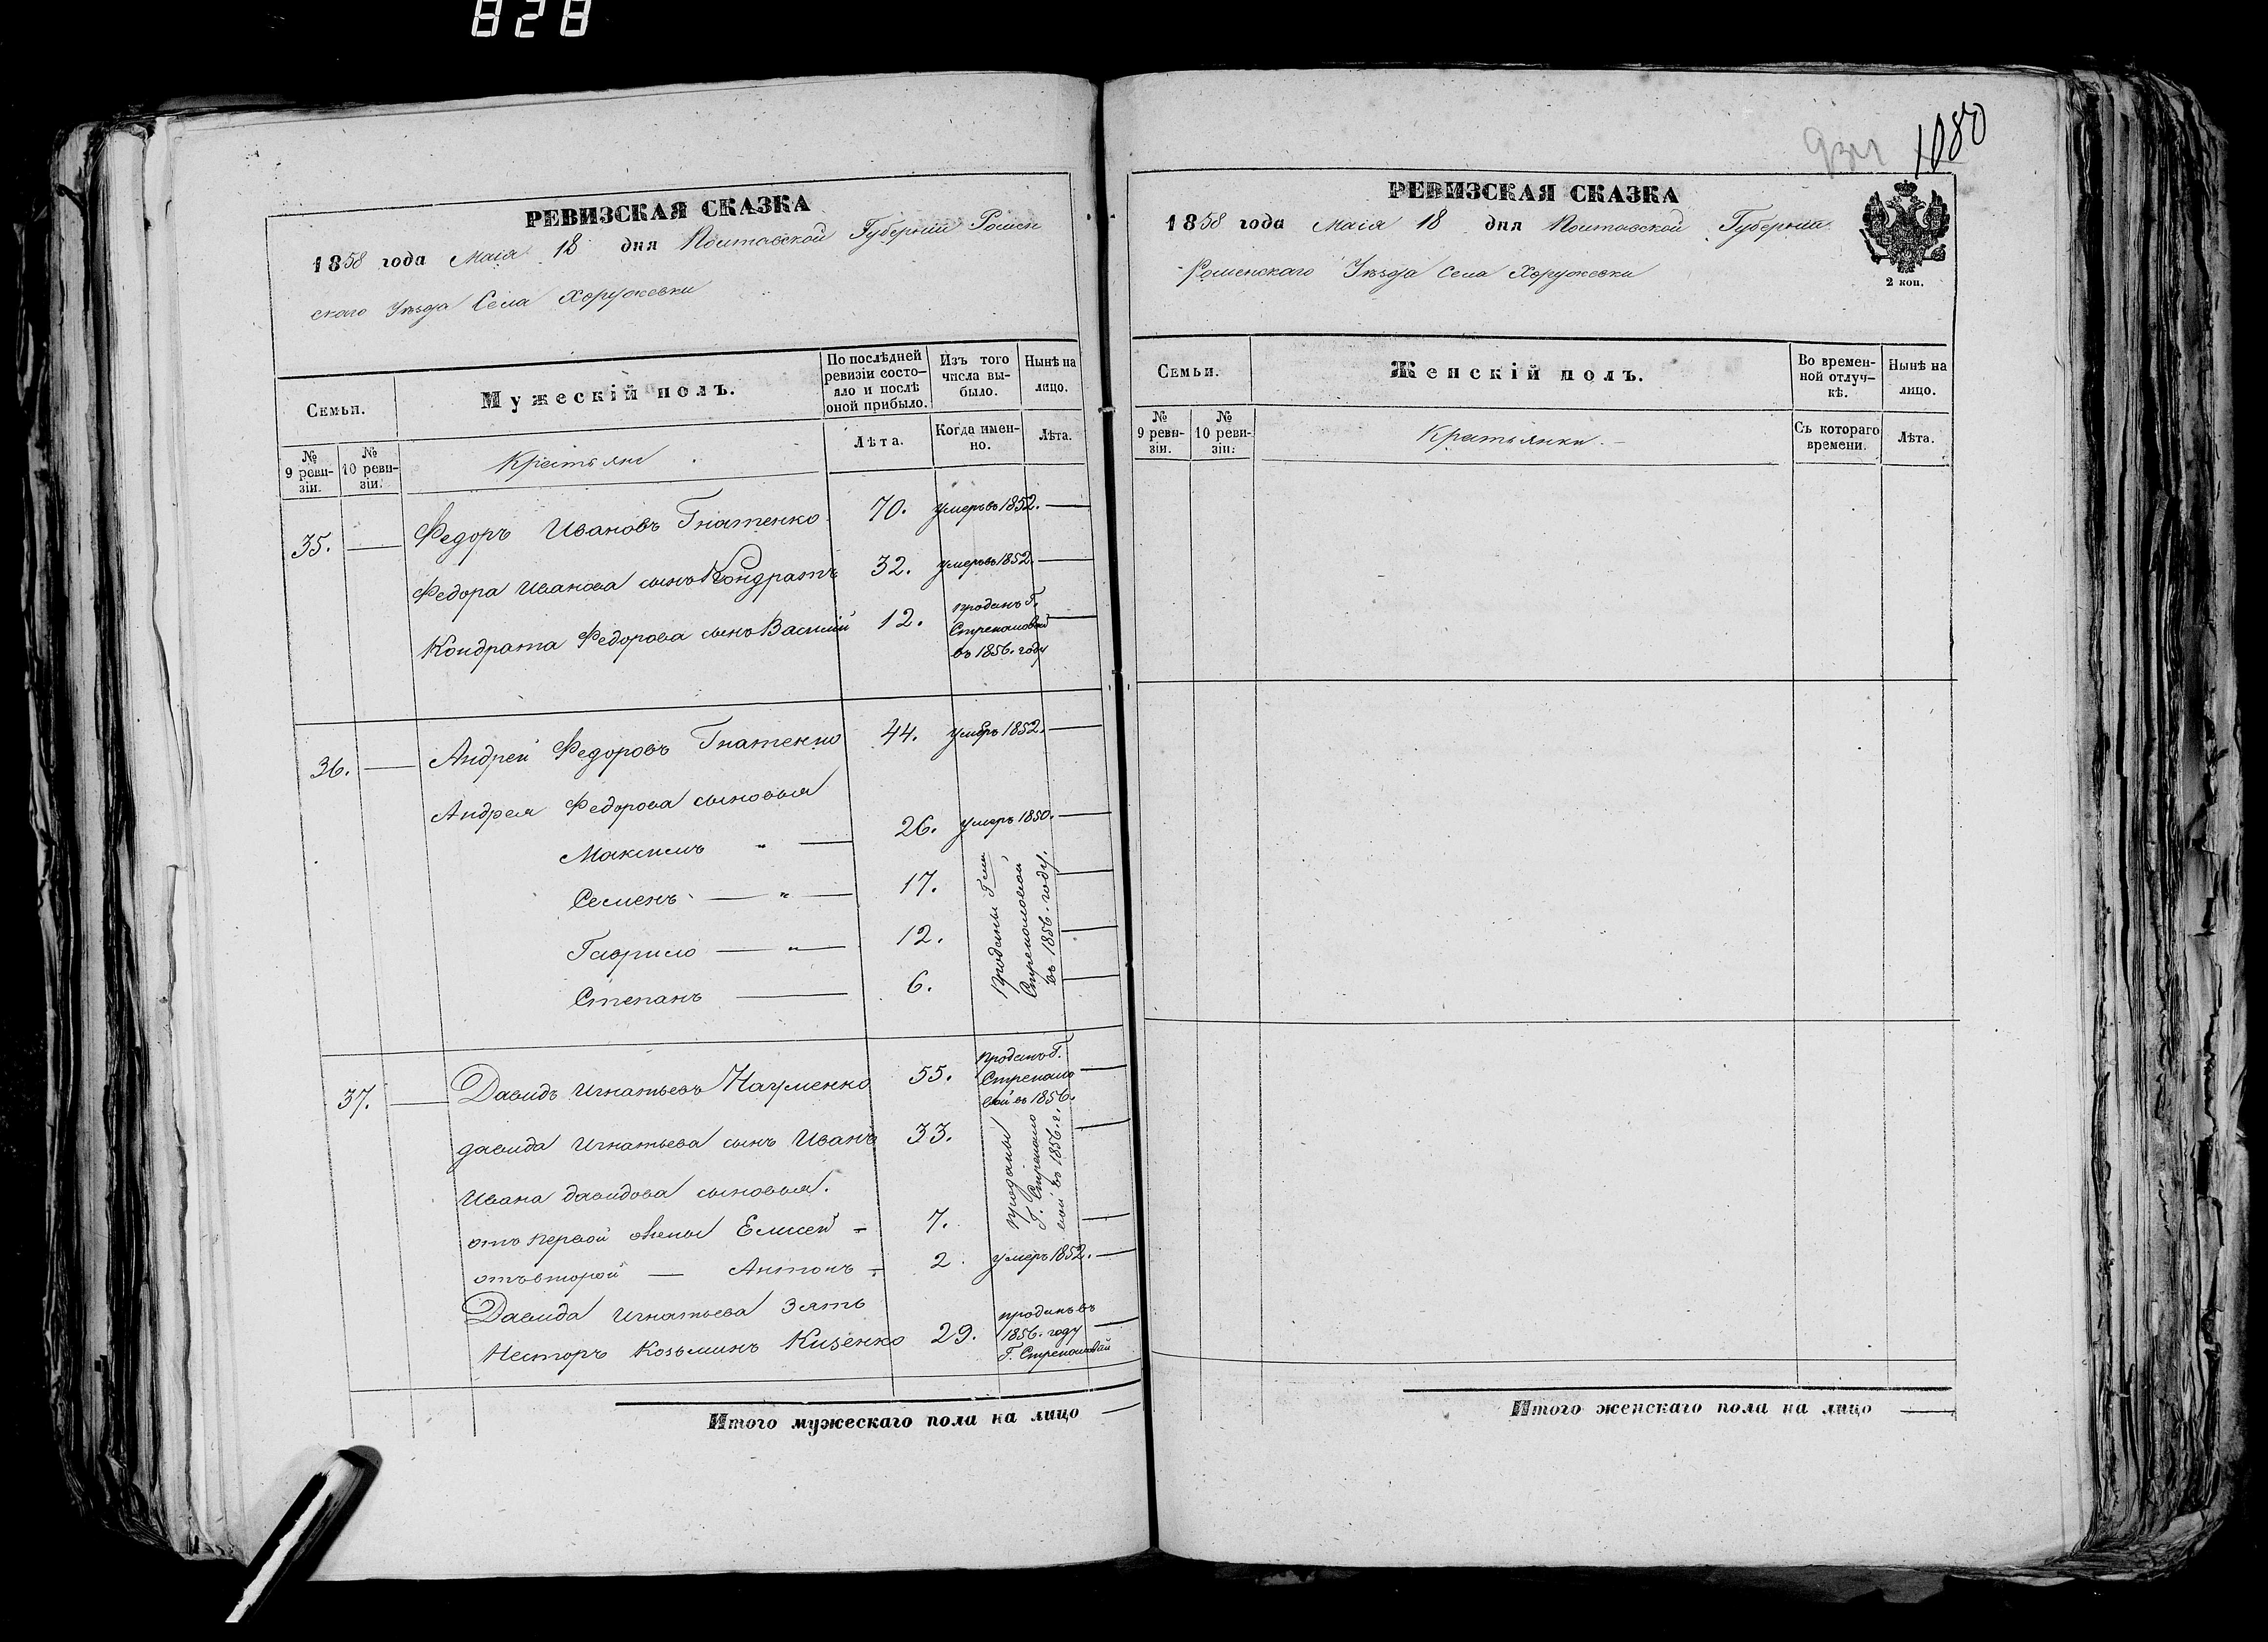 828
РЕВИЗСКАЯ СКАЗКА
1858 года Маія 18 дня Полтавской Губерніи Ромен
скаго Уѣзда Села Хоружевки
Семьи.
Мужескій полъ.
По послѣдней ревизіи состо-
яло и послѣ
оной прибыло.
Изъ того
числа вы-
было.
Нынѣ на
лицо.
№
9 реви-
зіи.
№
10 реви-
зіи.
Крестьяне
Лѣта.
Когда имен-
но.
Лѣта.
35. — Федоръ Ивановъ Гнатенко 70. умеръ въ 1852. —
Федора Иванова сынъ Кондратъ 32. умеръ въ 1852. —
Кондрата Федорова сынъ Василій 12. проданъ Г.
Стрекаловой —
въ 1856. году
36. — Андрей Федоровъ Гнатенко 44. умеръ 1852. —
Андрея Федорова сыновья
Максимъ " — 26. умеръ 1850. —
Семенъ — " — 17. —
Гаврило — " — 12. —
Степанъ — 6. —
проданы Г
Стрекаловой
въ 1856. году.
37. — Давидъ Игнатьевъ Науменко 55. проданъ Г.
Стрекало —
вой въ 1856.
давида Игнатьева сынъ Иванъ 33. —
Ивана давидова сыновья.
отъ первой жены Елисей - 7. —
проданы
Г. Стрекало
вой въ 1856. г.
отъ второй — Антонъ - 2. умеръ 1852. —
Давида Игнатьева зять
Несторъ Козьминъ Кизенко 29. проданъ въ
1856. году —
Г. Стрекаловой
Итого мужескаго пола на лицо —
1080
РЕВИЗСКАЯ СКАЗКА
1858 года Маія 18 дня Полтавской Губерніи
Роменскаго Уѣзда Села Хоружевки
2 коп.
Семьи.
Женскій полъ.
Во времен-
ной отлуч-
кѣ.
Нынѣ на
лицо.
№
9 реви-
зіи.
№
10 реви-
зіи.
Крестьянки. —
Съ котораго
времени.
Лѣта.
Итого женскаго пола на лицо —